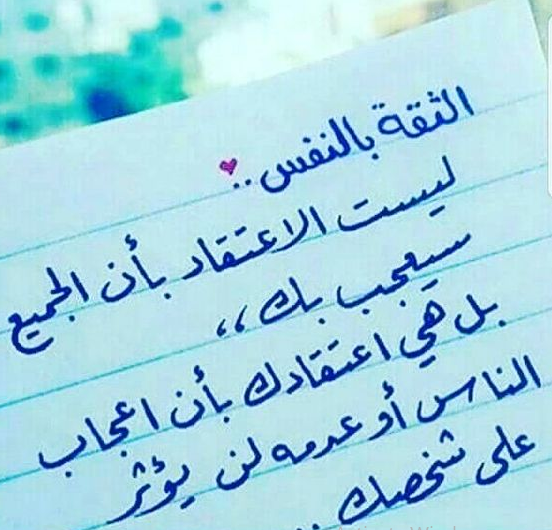 الثقة بالنفس..
ليست الاعتقاد بأن الجميع
سيعجب بك ،،
بل هي اعتقادك بأن اعجاب
الناس أو عدمه لن يؤثر
على شخصك ..